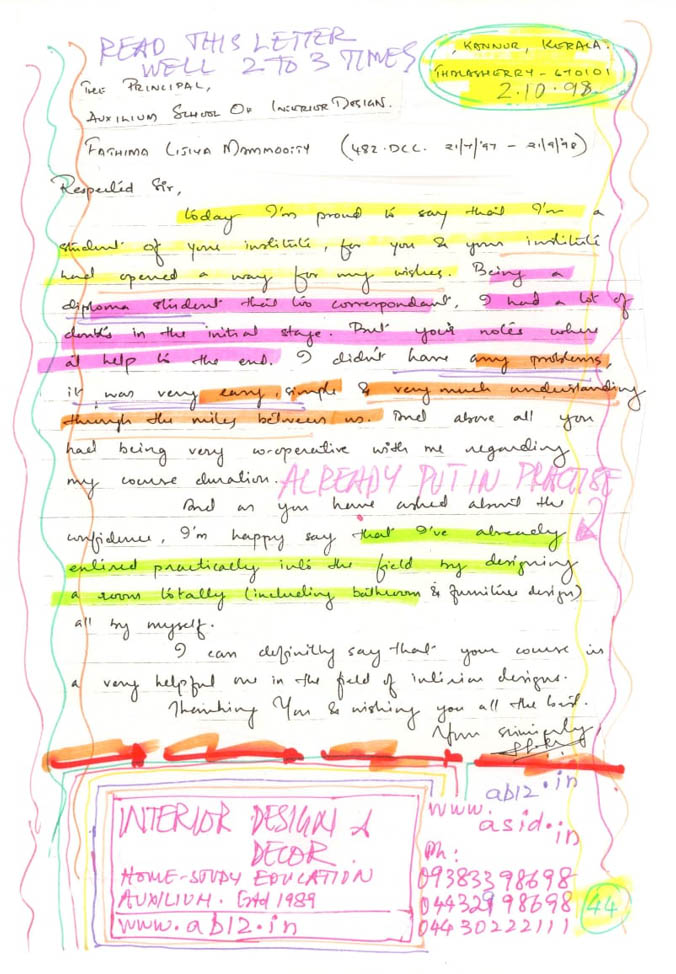 READ THIS LETTER
WELL 2 TO 3 TIMES
KANNUR, KERALA.
THALASHERRY - 670101
2.10.98.
THE PRINCIPAL,
AUXILIUM SCHOOL OF INTERIOR DESIGN.
FATHIMA LISIYA MAMMOOTY (482.DCC. 21/7/97 - 21/9/98)
Respected Sir,
today I'm proud to say that I'm a
student of your institute, for you & your institute
had opened a way for my wishes. Being a
diploma student that too correspondant, I had a lot of
doubts in the initial stage. But your notes where
at help to the end. I didn't have any problems,
it was very easy, simple & very much understanding
through the miles between us. And above all you
had being very co-operative with me regarding
my course duration. ALREADY PUT IN PRACTISE
And as you have asked about the
confidence, I'm happy say that I've already
entired practically into the field by designing
a room totally (including bathroom & furniture design)
all by myself.
I can definitly say that your course is
a very helpful one in the field of interior designs.
Thanking You & wishing you all the best.
Your sincerely,
INTERIOR DESIGN &
DECOR.
HOME-STUDY EDUCATION
AUXILIUM. Estd 1989
www.ab12.in
ab12.in
www.
asid.in
Ph:
09383398698
04432998698
04430222111
44